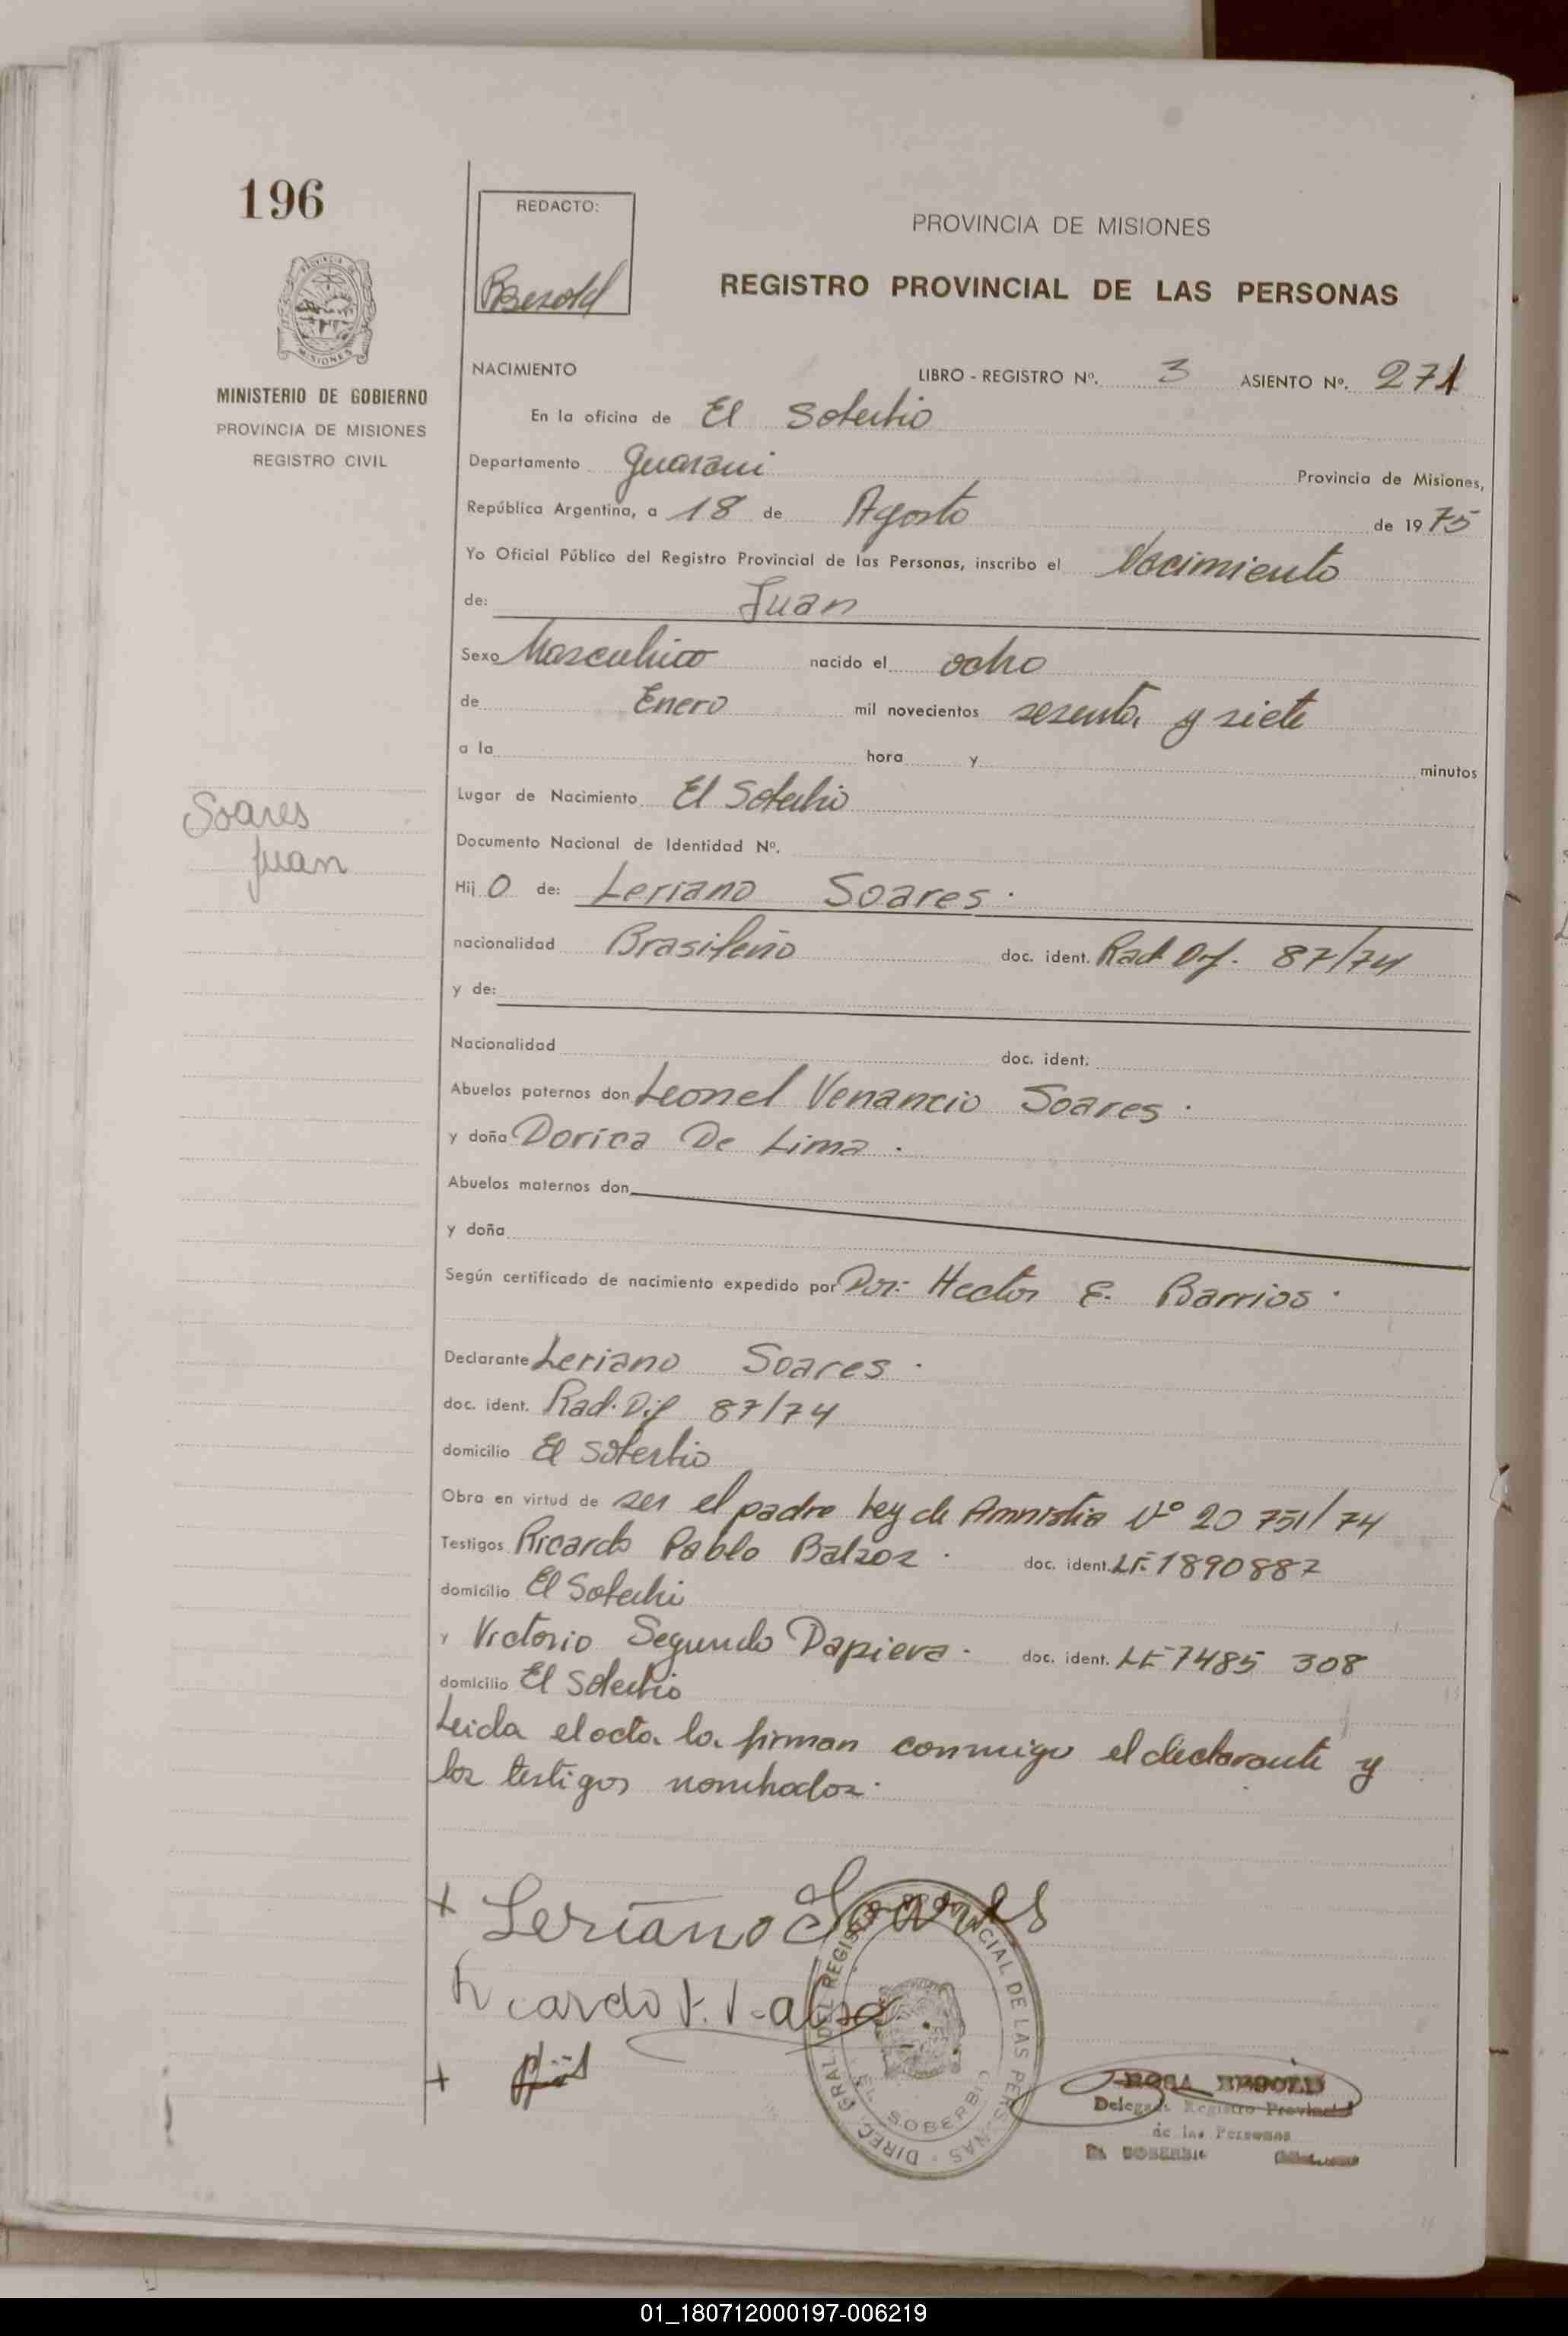 196
REDACTO:
PROVINCIA DE MISIONES
REGISTRO PROVINCIAL DE LAS PERSONAS
MINISTERIO DE GOBIERNO
PROVINCIA DE MISIONES
REGISTRO CIVIL
NACIMIENTO LIBRO - REGISTRO Nº. 3 ASIENTO Nº. 271
En la oficina de El Soberbio
Departamento Guarani Provincia de Misiones,
República Argentina, a 18 de Agosto de 1975
Yo Oficial Público del Registro Provincial de las Personas, inscribo el Nacimiento
de: Juan
Sexo Masculino nacido el ocho
de Enero mil novecientos sesenta y siete
a la hora y minutos
Lugar de Nacimiento El Soberbio
Soares
Juan
Documento Nacional de Identidad Nº.
Hij o de: Leriano Soares.
nacionalidad Brasileño doc. ident. Rad. 87/74
y de:
Nacionalidad doc. ident.
Abuelos paternos don Leonel Venancio Soares.
y doña Dorica De Lima.
Abuelos maternos don
y doña
Según certificado de nacimiento expedido por Dr. Hector E. Barrios.
Declarante Leriano Soares.
doc. ident. Rad. 87/74
domicilio El Soberbio
Obra en virtud de ser el padre Ley de Amnistia Nº 20 751/74
Testigos Ricardo Pablo Balzoz. doc. ident. LE 1890887
domicilio El Soberbio
y Victorio Segundo Dapieva. doc. ident. LE 7485 308
domicilio El Soberbio
Leida el acta la firman conmigo el declarante y
los testigos nombrados.
+ Leriano Soares
Ricardo
+
DIREC. GRAL. DEL REGISTRO PROVINCIAL DE LAS PERSONAS
EL SOBERBIO
ROSA BESOLD
Delegada Registro Provincial
de las Personas
EL SOBERBIO
01_180712000197-006219